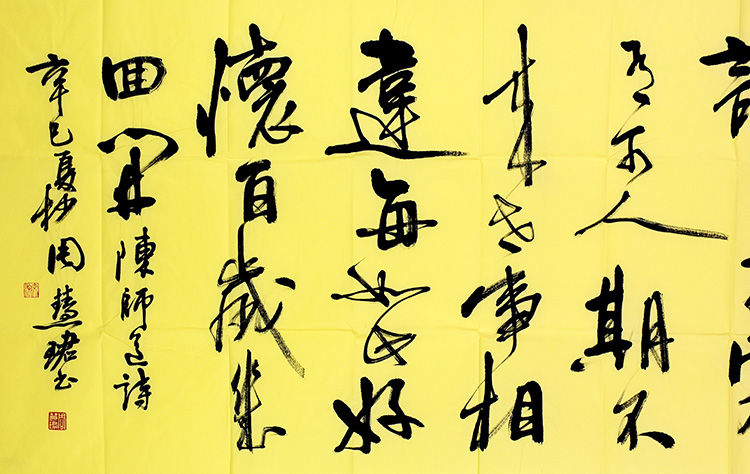 有可人期不
来世事相
違每如此好
懷百歲幾
回開陳師道詩
辛巳夏杪周慧珺书